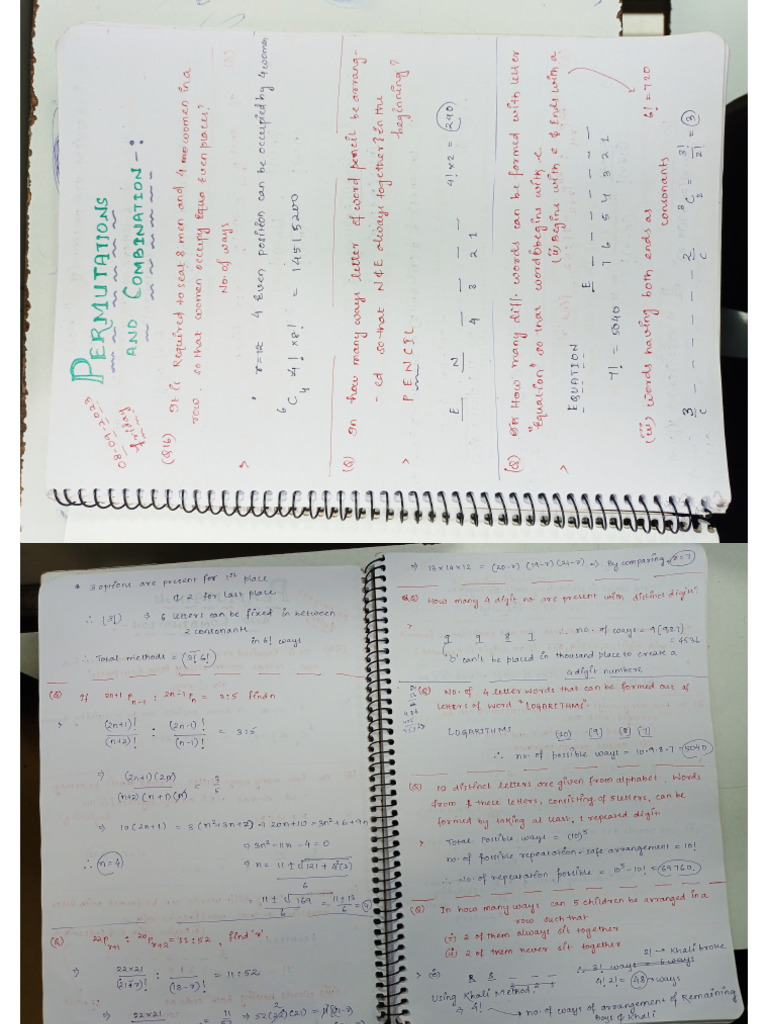 PERMUTATIONS
AND COMBINATION -:
08-09-2023
Friday
(Q16) It is Required to seat 8 men and 4 women in a
row. so that women occupy Even places?
No. of ways
> • r=12 4 Even position can be occupied by 4 women
⁶C₄ × 4! × 8! = 14515200
(Q) In how many ways letter of word pencil be arrang-
- ed so that N & E always together? in the
beginning?
> PENCIL
E N _ _ _ _ 4! × 2 = (240)
4 3 2 1
(Q) How many diff. words can be formed with letter
"Equation" so that words (i) begins with e.
(ii) Begins with e & Ends with a
> EQUATION
E _ _ _ _ _ _ _
7 6 5 4 3 2 1
7! = 5040
6! = 720
(iii) words having both ends as consonants
3 _ _ _ _ _ _ 2 ³C₂ = 3!/2! = (3)
C C
* 3 options are present for 1st place
& 2 for last place
∴ [3!] 3 6 letters can be fixed in between
2 consonants
in 6! ways
∴ Total methods = (3! 6!)
(Q) If ²ⁿ⁺¹Pₙ₋₁ : ²ⁿ⁻¹Pₙ = 3:5 find n
> (2n+1)!/(n+2)! : (2n-1)!/(n-1)! = 3:5
⇒ (2n+1)(2n)/(n+2)(n+1)(n) = 3/5
⇒ 10(2n+1) = 3(n²+3n+2) ⇒ 20n+10 = 3n²+6+9n
⇒ 3n²-11n-4=0
∴ (n=4) ⇒ n = 11±√121+4²(3)/6
= 11±√169/6 = 11±13/6 = (4)
(Q) ²²Pᵣ₊₁ : ²⁰Pᵣ₊₂ = 11:52, find 'r'.
⇒ 22×21/(21-r)! : 1/(18-r)! = 11:52
⇒ 13×14×12 = (20-r)(19-r)(21-r) ⇒ By comparing, (r=7)
(Q) How many 4 digit no. are present with distinct digit?
> 9 9 8 7 ∴ no. of ways = 9[9 8 7]
= 4536
'0' can't be placed in thousand place to create a
4 digit number
(Q) No. of 4 letter words that can be formed out of
letters of word "LOGARITHMS".
LOGARITHMS [10] [9] [8] [7]
∴ no. of possible ways = 10·9·8·7 = (5040)
(Q) 10 distinct letters are given from alphabet. Words
from these letters, consisting of 5 letters, can be
formed by taking at least, 1 repeated digit
> Total Possible ways = (10)⁵
no. of possible repeatation-safe arrangement = 10!
∴ No. of repeatation possible = 10⁵-10! = (69760.)
(Q) In how many ways can 5 children be arranged in a
row such that
(i) 2 of them always sit together
(ii) 2 of them never sit together
2! → Khali broke
∴ 2! ways = 6 ways
> (i) R S _ _ _ 4! 2! = (48) ways
Using Khali Method.
⇒ 4! → no. of ways of arrangement of Remaining
boys & Khali